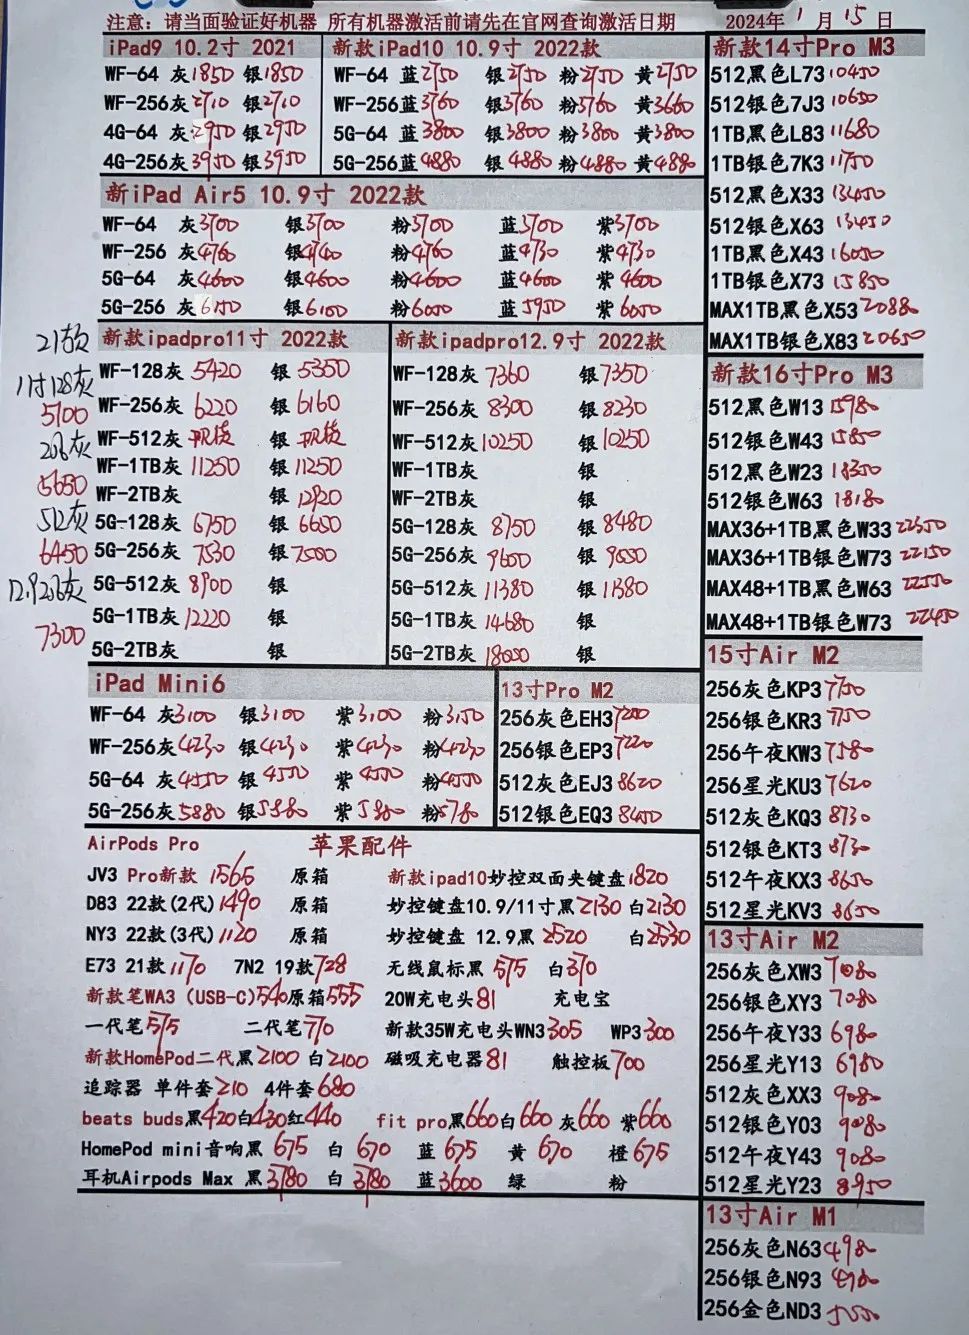 注意：请当面验证好机器 所有机器激活前请先在官网查询激活日期 2024年1月15日
iPad9 10.2寸 2021
WF-64 灰1850 银1850
WF-256灰2710 银2710
4G-64 灰2950 银2950
4G-256灰3950 银3950
新款iPad10 10.9寸 2022款
WF-64 蓝2750 银2750 粉2750 黄2750
WF-256蓝3760 银3760 粉3760 黄3660
5G-64 蓝3800 银3800 粉3800 黄3800
5G-256蓝4880 银4880 粉4880 黄4880
新iPad Air5 10.9寸 2022款
WF-64 灰3700 银3700 粉3700 蓝3700 紫3700
WF-256 灰4760 银4740 粉4760 蓝4730 紫4730
5G-64 灰4600 银4600 粉4600 蓝4600 紫4600
5G-256 灰6150 银6100 粉6050 蓝5950 紫6050
21款
11寸128灰
5100
256灰
5650
512灰
6450
12.9 256灰
7300
新款ipadpro11寸 2022款
WF-128灰 5420 银 5350
WF-256灰 6220 银 6160
WF-512灰 银
WF-1TB灰 11250 银 11250
WF-2TB灰 银 12920
5G-128灰 6750 银 6650
5G-256灰 7530 银 7500
5G-512灰 8900 银
5G-1TB灰 12220 银
5G-2TB灰 银
新款ipadpro12.9寸 2022款
WF-128灰 7360 银7350
WF-256灰 8300 银8230
WF-512灰 10250 银10250
WF-1TB灰 银
WF-2TB灰 银
5G-128灰 8750 银 8480
5G-256灰 9600 银 9050
5G-512灰 11380 银 11380
5G-1TB灰 14680 银
5G-2TB灰 18000 银
iPad Mini6
WF-64 灰3100 银3100 紫3100 粉3150
WF-256灰4230 银4230 紫4230 粉4230
5G-64 灰4550 银4550 紫4550 粉4550
5G-256灰5880 银5880 紫5880 粉5780
13寸Pro M2
256灰色EH3 7200
256银色EP3 7220
512灰色EJ3 8620
512银色EQ3 8450
AirPods Pro 苹果配件
JV3 Pro新款 1565 原箱 新款ipad10妙控双面夹键盘1820
D83 22款(2代)1490 原箱 妙控键盘10.9/11寸黑2130 白2130
NY3 22款(3代)1120 原箱 妙控键盘 12.9黑 2520 白2530
E73 21款1170 7N2 19款728 无线鼠标黑 575 白370
新款笔WA3 (USB-C)540原箱555 20W充电头81 充电宝
一代笔575 二代笔770 新款35W充电头WN3 305 WP3 300
新款HomePod二代黑2100 白2100 磁吸充电器81 触控板700
追踪器 单件套210 4件套680
beats buds黑420白430红440 fit pro黑660白660 灰660 紫660
HomePod mini音响黑 675 白 670 蓝 675 黄 670 橙675
耳机Airpods Max 黑3780 白 3780 蓝3600 绿 粉
新款14寸Pro M3
512黑色L73 10450
512银色7J3 10650
1TB黑色L83 11680
1TB银色7K3 11750
512黑色X33 13450
512银色X63 13450
1TB黑色X43 16050
1TB银色X73 15850
MAX1TB黑色X53 20880
MAX1TB银色X83 20650
新款16寸Pro M3
512黑色W13 15980
512银色W43 15850
512黑色W23 18350
512银色W63 18180
MAX36+1TB黑色W33 22350
MAX36+1TB银色W73 22150
MAX48+1TB黑色W63 22550
MAX48+1TB银色W73 22450
15寸Air M2
256灰色KP3 7750
256银色KR3 7750
256午夜KW3 7580
256星光KU3 7620
512灰色KQ3 8730
512银色KT3 8730
512午夜KX3 8650
512星光KV3 8650
13寸Air M2
256灰色XW3 7080
256银色XY3 7080
256午夜Y33 6980
256星光Y13 6980
512灰色XX3 9080
512银色Y03 9080
512午夜Y43 9080
512星光Y23 8950
13寸Air M1
256灰色N63 4980
256银色N93
256金色ND3 5550